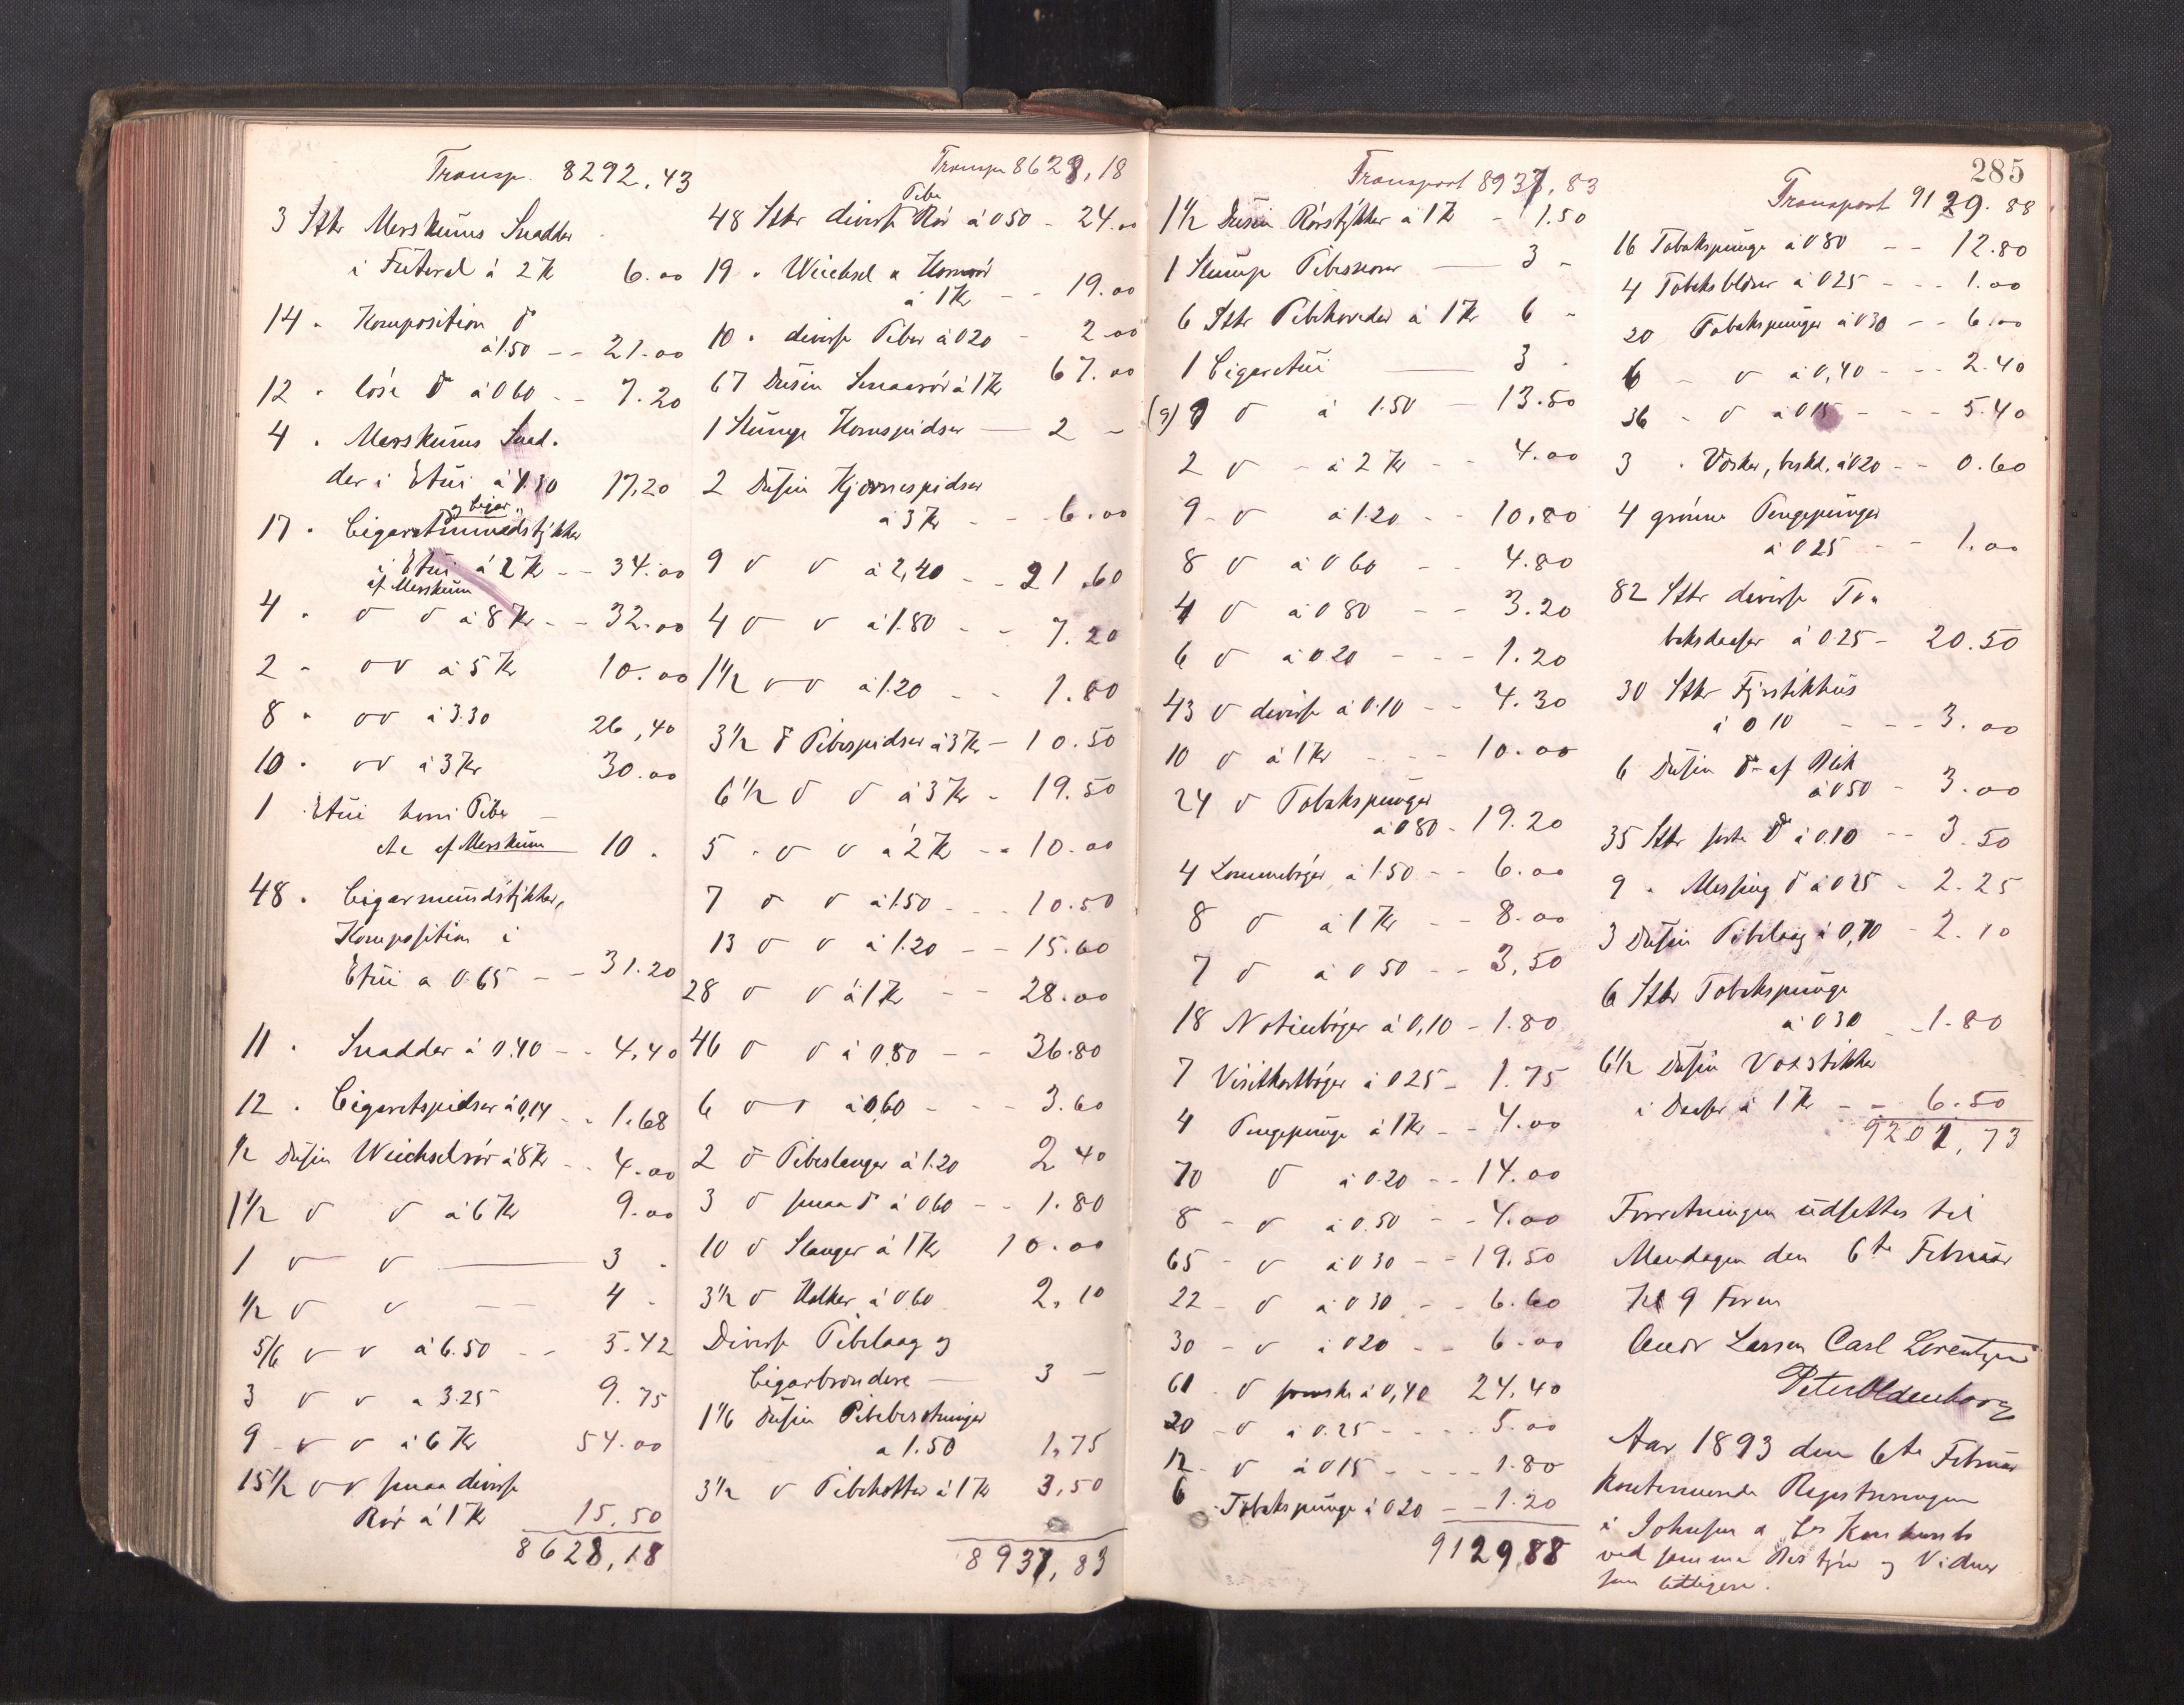 Transp. 8292,43
3 Stkr Merskums Snadder
i Futeral à 2 Kr 6.00
14 " Komposition do
à 1.50 -- 21.00
12 " løse do à 0 60 -- 7.20
4 " Merskums Snad-
der i Etui à 4.30 17,20
og Cigar-
17 " Cigaretmundstykker
i Etui à 2 Kr -- 34.00
af Merskum
4 " do do à 8 Kr -- 32.00
2 " do do à 5 Kr 10.00
8 " do do à 3.30 26,40
10 " do do à 3 Kr 30.00
1 Etui hvori Pibe
etc af Merskum 10 -
48 " Cigarmundstykker,
Komposition i
Etui a 0.65 -- 31.20
11 " Snadder à 0.40 -- 4,40
12 " Cigaretspidser à 0,14 -- 1.68
1/2 Dusin Weichselrør à 8 Kr -- 4.00
1 1/2 do do à 6 Kr 9.00
1 do do 3 -
1/2 do do -- 4 -
5/6 do do à 6.50 -- 5.42
3 do do a 3.25 9.75
9 - do do à 6 Kr 54.00
15 1/2 do do smaa diverse
Rør à 1 Kr 15.50
8628,18
Transp 8628,18
Pibe
48 Stkr diverse Rør à 0 50 - 24.00
19 " Weichsel a Hornrør
à 1 Kr -- 19.00
10 " diverse Piber à 0 20 - 2.00
67 Dusin Smaarør à 1 Kr 67.00
1 Slump Hornspidser - 2 -
2 Dusin Kjørnespidser
à 3 Kr -- 6.00
9 do do à 2,40 -- 21.60
4 do do à 1.80 -- 7.20
1 1/2 do do à 1.20 -- 1.80
3 1/2 do Pibespidser à 3 Kr - 10.50
6 1/2 do do à 3 Kr - 19.50
5 - do do à 2 Kr -- 10.00
7 do do à 1.50 -- 10.50
13 do do à 1.20 -- 15.60
28 do do à 1 Kr -- 28.00
46 do do à 0.80 -- 36.80
6 do do à 0.60 -- 3.60
2 do Pibeslanger à 1.20 2 40
3 do smaa do à 0 60 -- 1.80
10 do Slanger à 1 Kr 10.00
3 1/2 do Kolker à 0.60 2,10
Diverse Pibelaag og
Cigarbrændere - 3 -
1 1/6 Dusin Pibebeslninger
a 1.50 1,75
3 1/2 do Pibehatter à 1 Kr 3,50
8937,83
285
Transport 8937,83
1 1/2 Dusin Rørstykker à 1 Kr - 1.50
1 Slump Pibesnorer - 3 -
6 Stkr Pibehoveder à 1 Kr 6 -
1 Cigaretui - 3 -
(9) 9 do à 1.50 - 13.50
2 do - à 2 Kr -- 4.00
9 - do à 1.20 -- 10.80
8 do à 0 60 -- 4.80
4 do à 0 80 -- 3.20
6 do à 0.20 --- 1.20
43 do diverse à 0.10 -- 4.30
10 do à 1 Kr --- 10.00
24 do Tobakspunger
à 0 80 - 19.20
4 Lommebøger à 1.50 -- 6.00
8 do à 1 Kr -- 8.00
7 do à 0 50 -- 3,50
18 Notisbøger à 0,10 - 1.80
7 Visitkortbøger à 0 25 - 1.75
4 Pengepunge à 1 Kr -- 4.00
70 do à 0.20 -- 14.00
8 - do à 0.50 -- 4.00
65 - do à 0 30 -- 19.50
22 - do à 0 30 -- 6.60
30 - do à 0 20 -- 6.00
61 - do à 0,40 24.40
20 - do à 0.25 ---- 5.00
12 - do à 0 15 ---- 1.80
6 - Tobakspunge à 0 20 -- 1.20
9129,88
Transport 9129.88
16 Tobakspunge à 0 80 -- 12.80
4 Tobaksblærer à 0 25 --- 1.00
20 Tobakspunger à 0 30 -- 6.00
6 - do à 0,40 --- 2.40
36 - do à 0 15 --- 5.40
3 " Væsker, beskd. à 0 20 -- 0.60
4 grønne Pengepunger
à 0 25 -- 1.00
82 Stkr diverse To-
baksdaaser à 0 25 - 20.50
30 Stkr Fyrstikhus
à 0 10 --- 3.00
6 Dusin do af Blik
à 0 50 - 3.00
35 Stkr sorte do à 0.10 -- 3.50
9 " Messing do à 0 25 - 2.25
3 Dusin Pibelaag à 0,70 - 2.10
6 Stkr Tobakspunge
à 0 30 - 1.80
6 1/2 Dusin Voxstikker
i Daaser à 1 Kr -- 6.50
9201,73
Forretningen udsettes til
Mandagen den 6te Februar
Kl 9 Form
Andr Larsen Carl Lorentzen
Peter Oldenborg
Aar 1893 den 6te Februar
kontinuerede Registreringen
i Johnsen & Co's Konkursbo
ved samme Bestyrer og Vidner
som tidligere.